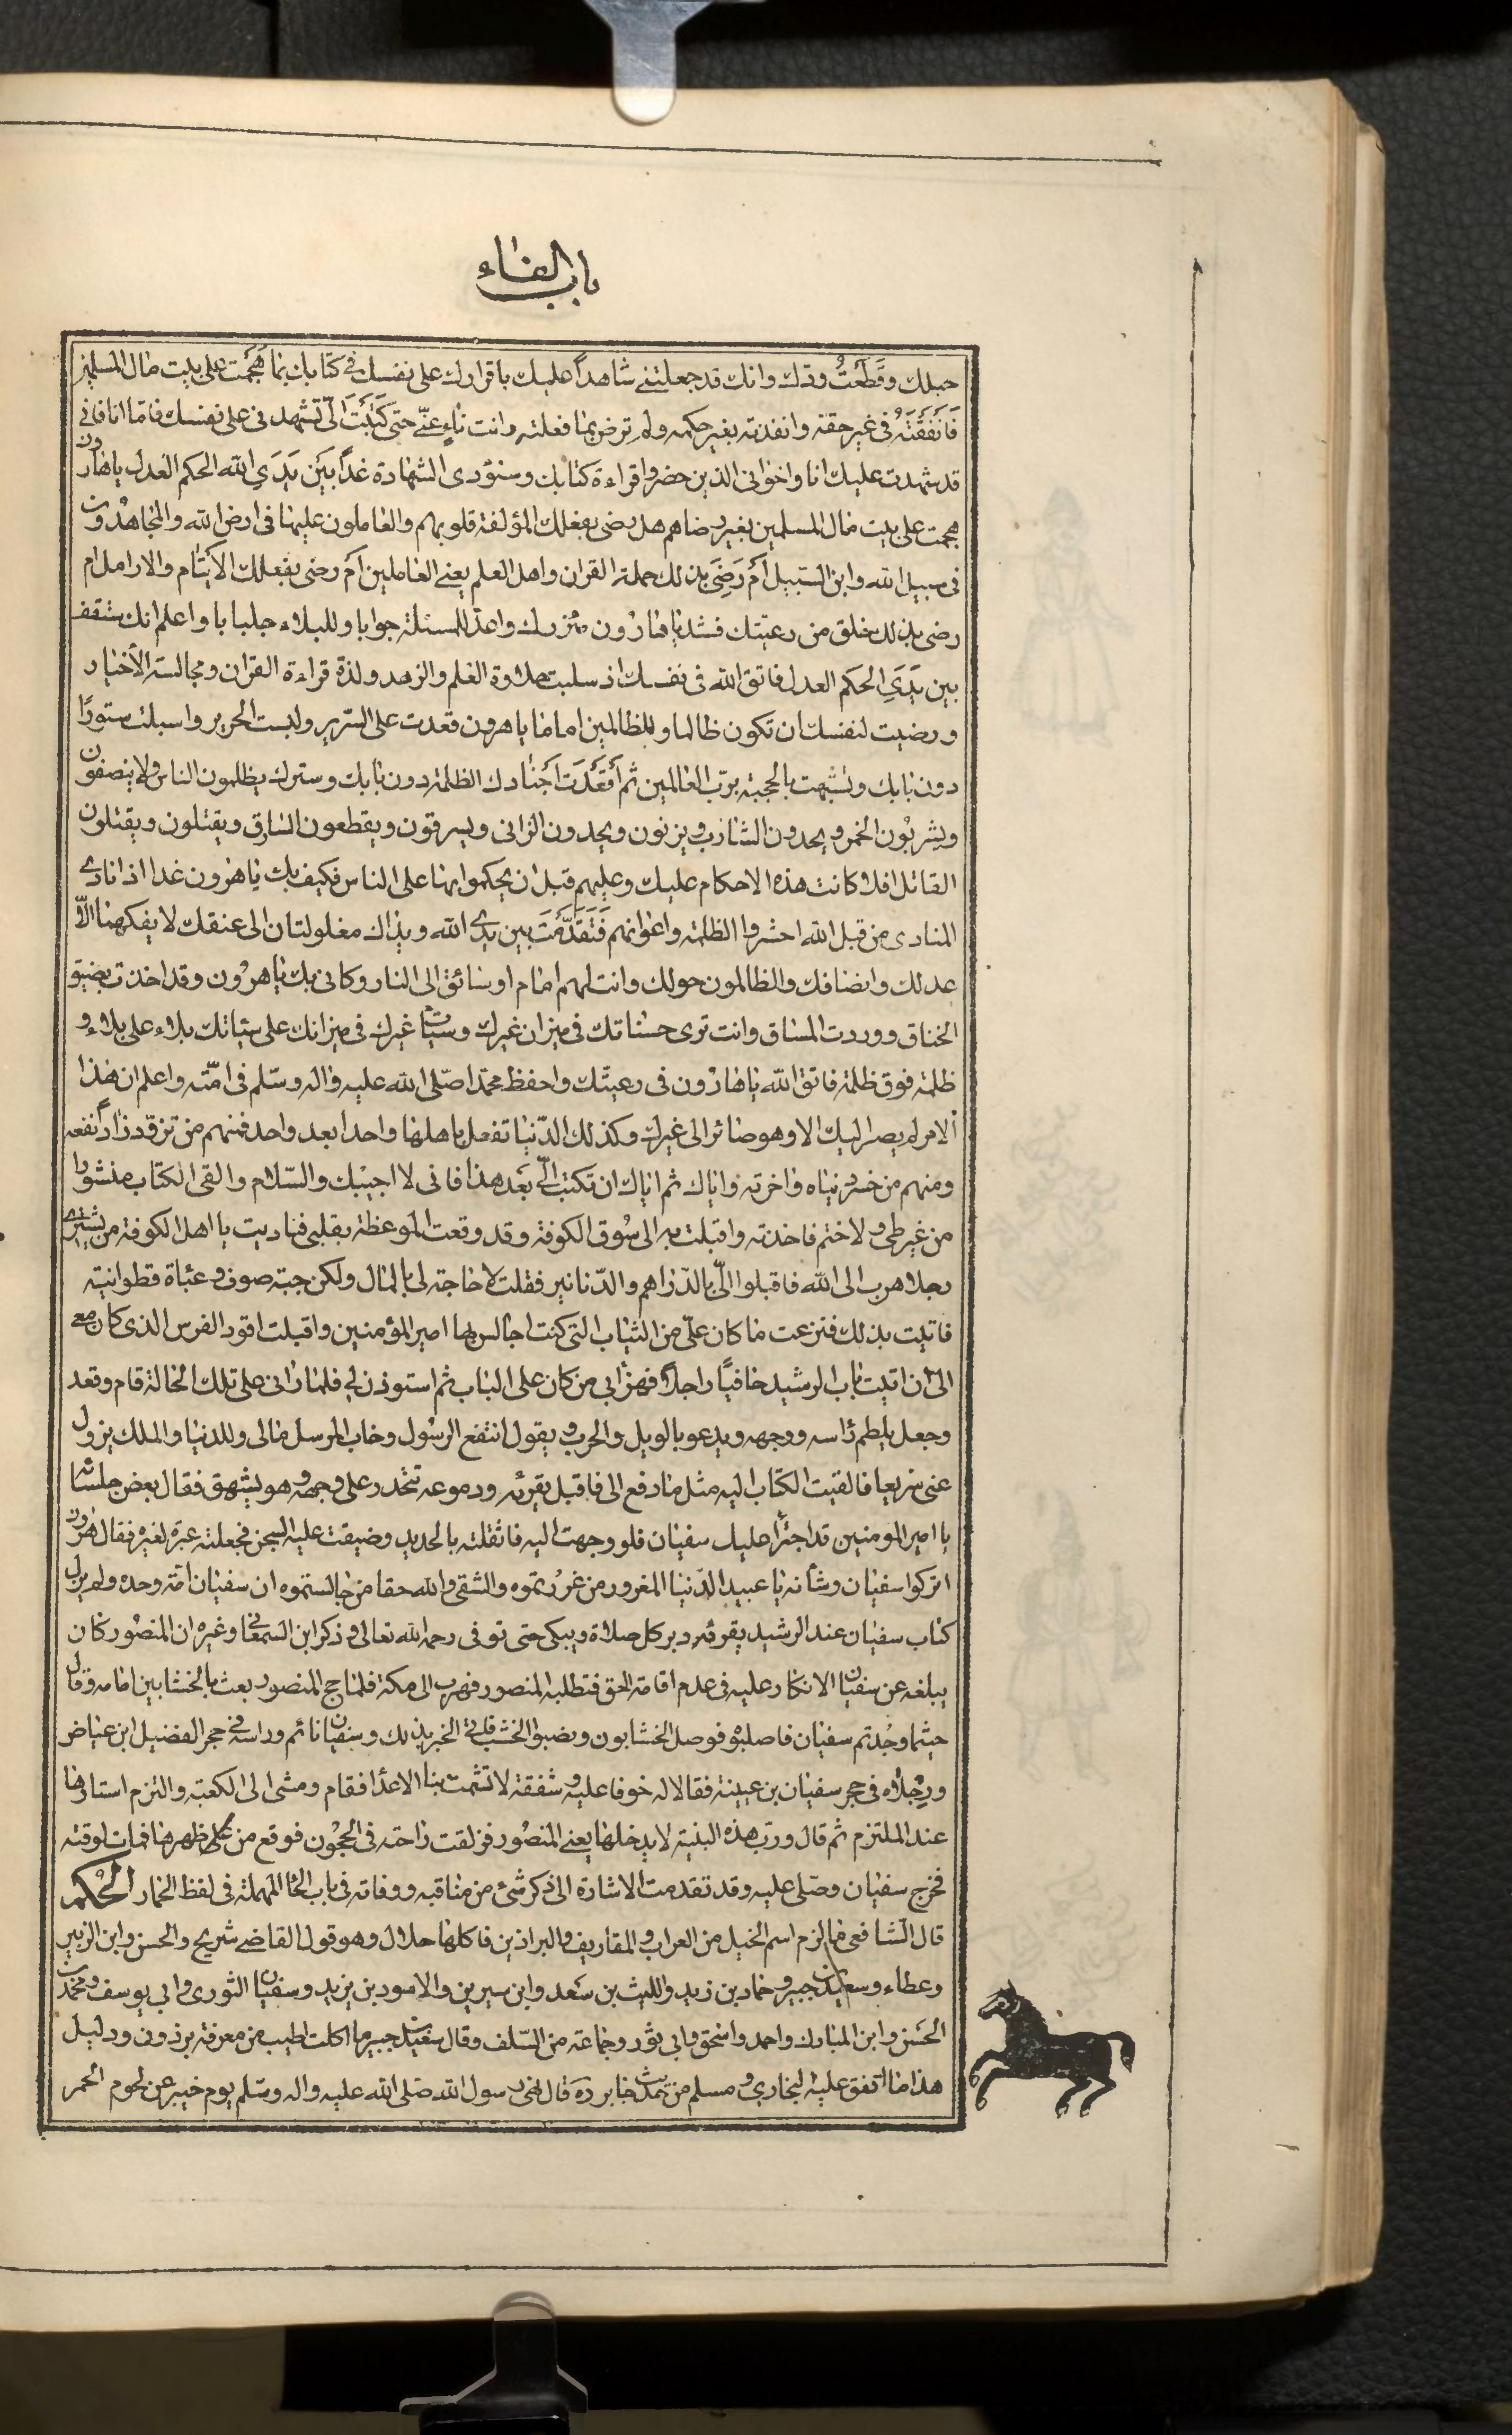 باب الفاء
حبلك وقَطَعْتُ ودّك وانك قد جعلتنے شاهداً عليك باقرارك على نفسك فے كتابك بما هَجَمْتَ على بيت مال المسلمين
فَاَنفَقْتَهُ فى غير حقه وانفدته بغير حكمه ولم ترض بما فعلته وانت ناءٍ عنّے حتى كَتَبْتَ الىّ تشهدنى على نفسك فامّا انا فانى
قد شهدت عليك انا واخوانى الذين حضروا قراءة كتابك وسنؤدى الشهادة غداً بَيْنَ يَدَيِ الله الحكم العدل ياهارون
هجمت على بيت مال المسلمين بغير رضاهم هل رضى بفعلك المؤلفة قلوبهم والعاملون عليها فى ارض الله والمجاهدون
فى سبيل الله وابن السّبيل اَمْ رَضِىَ بذلك حملة القران واهل العلم يعنے العاملين اَمْ رضى بفعلك الايتام والارامل ام
رضى بذلك خلق من رعيّتك فشد ياهارون مئزرك واعدّ للمسئلة جوابا وللبلاء جلبابا واعلم انك ستقف
بين يَدَيِ الحكم العدل فاتق الله فى نفسك اذ سلبت حلاوة العلم والزهد ولذة قراءة القران ومجالسة الاخيار
ورضيت لنفسك ان تكون ظالما وللظالمين اماما ياهرون قعدت على السّرير ولبست الحرير واسبلت ستورًا
دون بابك وتشبهت بالحجبة بربّ العالمين ثم اَقْعَدْتَ اَجْنَادك الظلمة دون بابك وسترك يظلمون الناس ولا ينصفون
ويشربون الخمر ويحدون الشارب ويزنون ويحدون الزانى ويسرقون ويقطعون السّارق ويقتلون ويقتلون
القاتل افلا كانت هذه الاحكام عليك وعليهم قبل ان يحكموا بها على الناس فكيف بك ياهرون غدا اذا نادے
المنادى من قبل الله احشروا الظلمة واعوانهم فَتَقَدَّمْتَ بين يدے الله ويداك مغلولتان الى عنقك لا يفكهما الّا
عدلك وانصافك والظالمون حولك وانت لهم امام او سائق الى النار وكانى بك ياهرون وقد اخذت بضيق
الخناق ووردت المساق وانت ترى حسناتك فى ميزان غيرك وسيئات غيرك فى ميزانك على سيّئاتك بلاء على بلاء و
ظلمة فوق ظلمة فاتق الله ياهارون فى رعيتك واحفظ محمّدا صلّى الله عليه واله وسلّم فى امّته واعلم ان هذا
الامر لم يصر اليك الا وهو صائر الى غيرك وكذلك الدّنيا تفعل باهلها واحدا بعد واحد فمنهم من تزوّد زاداً نفعه
ومنهم من خسر دنياه واخرته واياك ثم اياك ان تكتب الىّ بَعد هذا فانى لا اجيبك والسّلام والقى الكتاب منشورا
من غير طى ولا ختم فاخذته واقبلت به الى سُوق الكوفة وقد وقعت الموعظة بقلبى فناديت يا اهل الكوفة من يشترے
رجلا هرب الى الله فاقبلوا الىّ بالدّراهم والدّنانير فقلت لا حاجة لى بالمال ولكن جبة صوف وعباة قطوانية
فاتيت بذلك فنزعت ما كان علىّ من الثياب التى كنت اجالس بها امير المؤمنين واقبلت اقود الفرس الذى كان معے
الى ان اتيت باب الرشيد حافيًا راجلًا فهزأ بى من كان على الباب ثم استوذن لى فلما رانى على تلك الحالة قام وقعد
وجعل يلطم راسه ووجهه ويدعو بالويل والحرب ويقول انتفع الرسُول وخاب المرسل مالى وللدنيا والملك يزول
عنى سريعا فالقيت الكتاب اليه مثل ما دفع الى فاقبل يقرئه ودموعه تتحدر على وجهه وهو يشهق فقال بعض جلسائه
يا امير المومنين قد اجترأ عليك سفيان فلو وجهت اليه فاثقلته بالحديد وضيقت عليه السجن فجعلته عبرة لغيره فقال هرون
اتركوا سفيان وشأنه يا عبيد الدّنيا المغرور من غرُرتموه والشقى والله حقا من جالستموه ان سفيان امّة وحده ولم يزل
كتاب سفيان عند الرشيد يقرئه دبر كل صلاة ويبكى حتى توفى رحمه الله تعالى وذكر ابن السمعانى وغيره ان المنصُور كان
يبلغه عن سفيان الانكار عليه فى عدم اقامة الحق فتطلبه المنصور فهرب الى مكة فلما حج المنصور بعث بالخشابين امامه وقال
حيثما وجُدتم سفيان فاصلبوه فوصل الخشابون ونصبوا الخشب فاتى الخبر بذلك وسفيان نائم وراسه فى حجر الفضيل ابن عياض
ورِجْلَاه فى حجر سفيان بن عيينة فقالا له خوفا عليه وشفقة لا تشمت بنا الاعدا فقام ومشى الى الكعبة والتزم استارها
عند الملتزم ثم قال ورب هذه البنية لا يدخلها يعنے المنصُور فزلقت راحلته فى الحجون فوقع من على ظهرها فمات لوقته
فخرج سفيان وصلّى عليه وقد تقدمت الاشارة الى ذكر شئ من مناقبه ووفاته فى باب الحا المهملة فى لفظ الحمار الحُكم
قال الشافعى ما لزم اسم الخيل من العراب والمقاريف والبراذين فاكلها حلال وهو قول القاضے شريح والحسن وابن الزبير
وعطاء وسعيد بن جبير وحماد بن زيد والليث بن سَعد وابن سيرين والاسود بن يزيد وسفيان الثورى وابى يوسف ومحمّد بن
الحسَن وابن المبارك واحمد واسحق وابى ثور وجماعة من السّلف وقال سعيد بن جبير ما اكلت اطيب من معرفة برذون ودليل
هذا ما اتفق عليه البخارى ومسلم من حديث جابر رَه قال نهى رسول الله صلى الله عليه واله وسلّم يوم خيبر عن لحوم الحمر